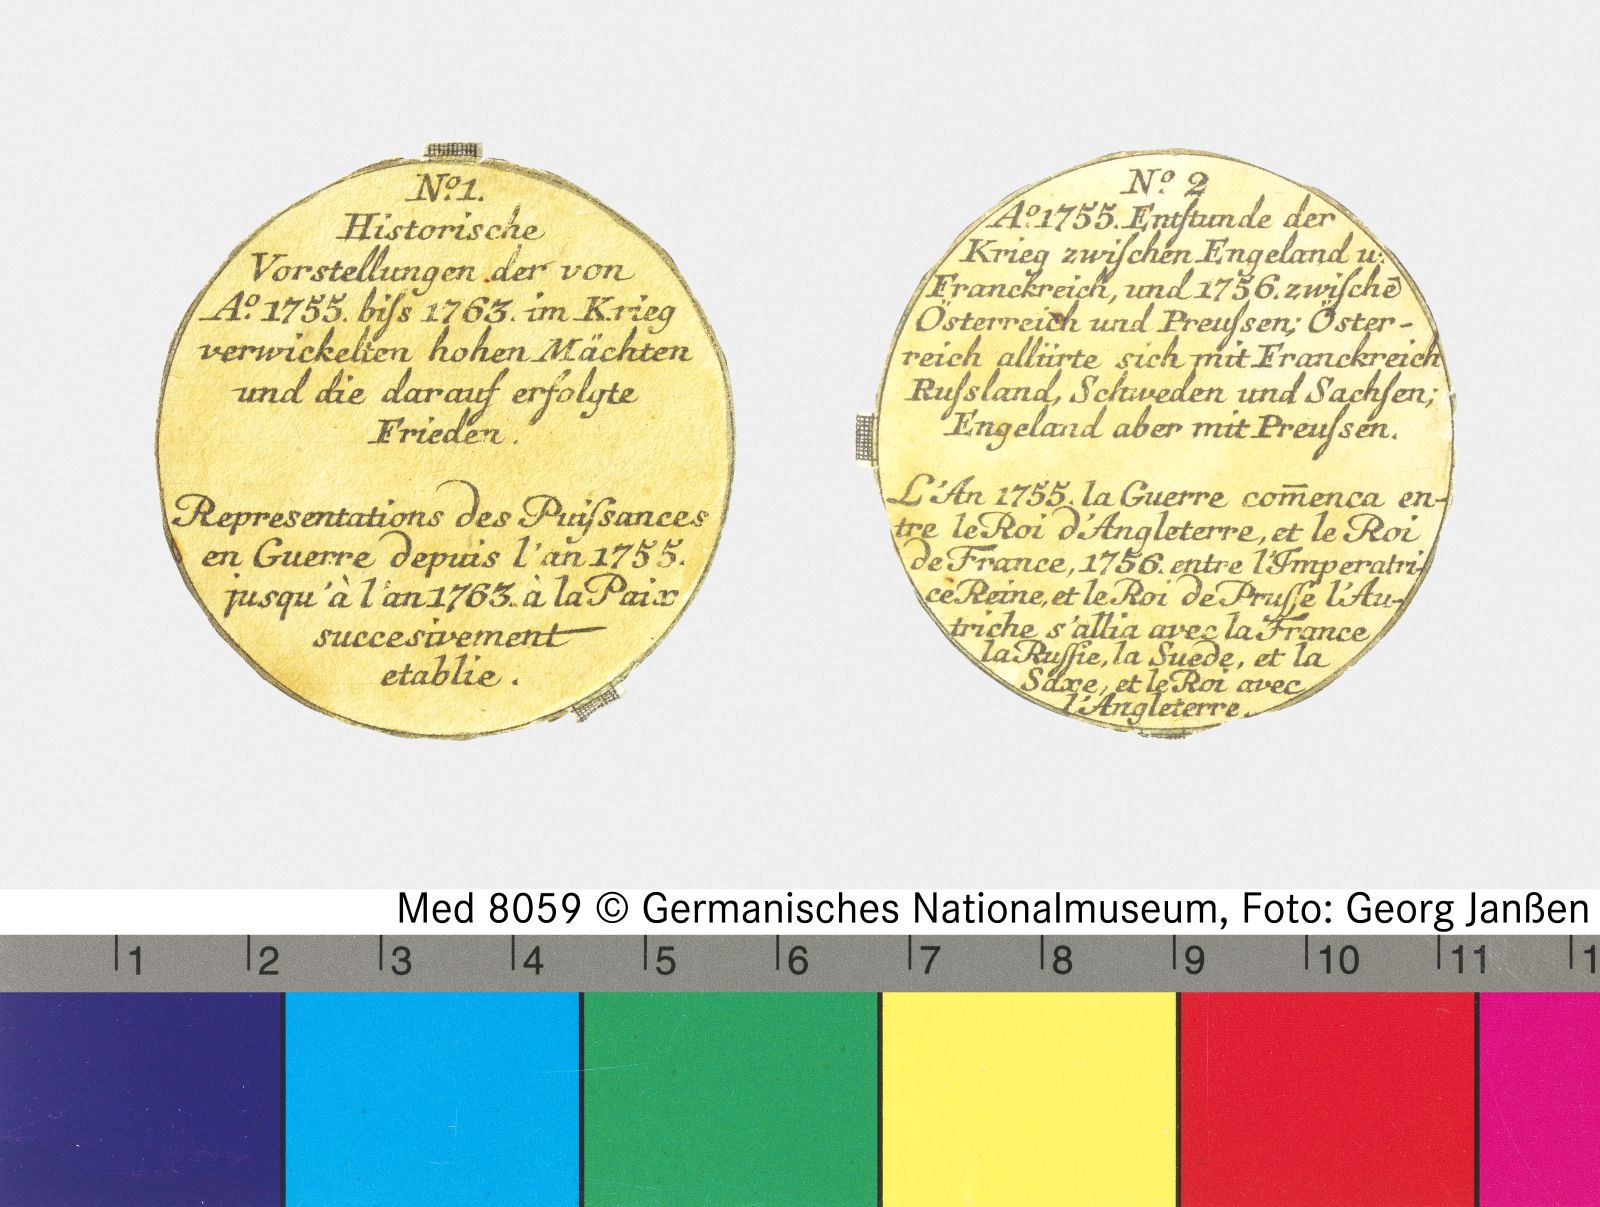 Nº.1.
Historische
Vorstellungen der von
Aº. 1755. biſs 1763. im Krieg
verwickelten hohen Mächten
und die darauf erfolgte
Frieden.
Representations des Puiſsances
en Guerre depuis l'an 1755.
jusqu'à l'an 1763. à la Paix
succesivement
etablie.
Nº. 2
Aº. 1755. Entſtunde der
Krieg zwiſchen Engeland u:
Franckreich, und 1756. zwiſchē
Österreich und Preuſsen; Öster-
reich alliirte sich mit Franckreich
Ruſsland, Schweden und Sachſen;
Engeland aber mit Preuſsen.
L'An 1755. la Guerre com̄enca en-
tre le Roi d'Angleterre, et le Roi
de France, 1756. entre l'Imperatri-
ce Reine, et le Roi de Pruſſe l'Au-
triche s'allia avec la France
la Ruſſie, la Suede, et la
Saxe, et le Roi avec
l'Angleterre.
Med 8059 © Germanisches Nationalmuseum, Foto: Georg Janßen
1 2 3 4 5 6 7 8 9 10 11 1